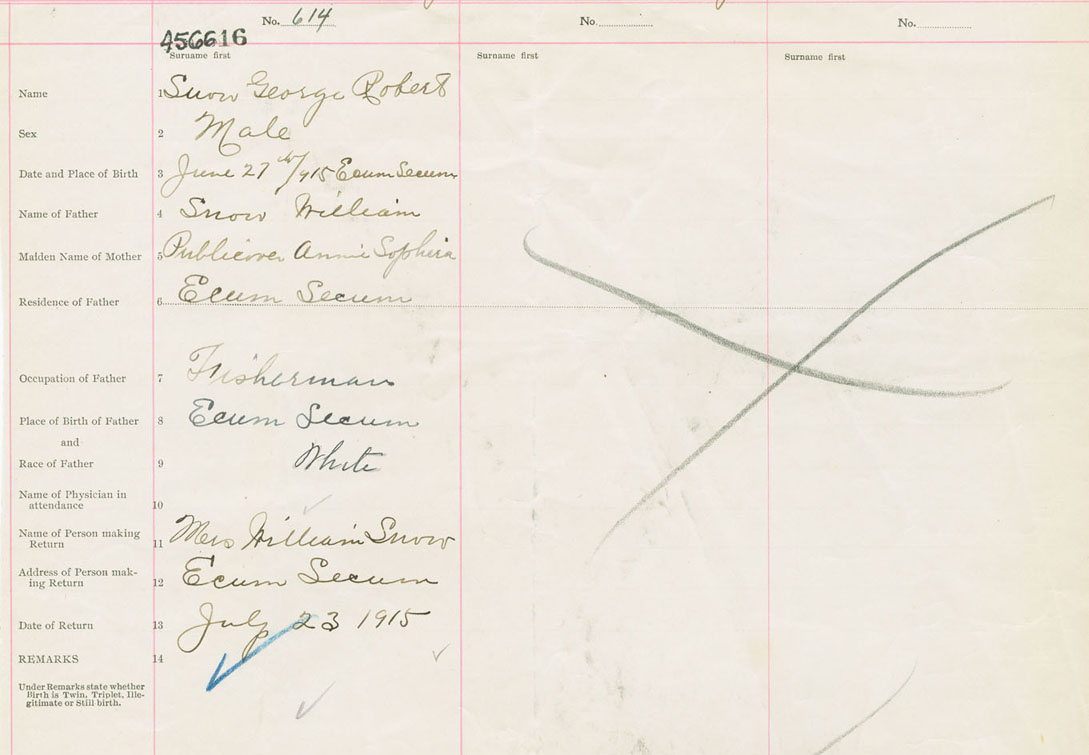 No. 614 No. No.
456616
Surname first Surname first Surname first
Name 1 Snow George Robert
Sex 2 Male
Date and Place of Birth 3 June 27th/915 Ecum Secum
Name of Father 4 Snow William
Maiden Name of Mother 5 Publicover Annie Sophria
Residence of Father 6 Ecum Secum
Occupation of Father 7 Fisherman
Place of Birth of Father 8 Ecum Secum
and
Race of Father 9 White
Name of Physician in
attendance 10
Name of Person making
Return 11 Mrs William Snow
Address of Person mak-
ing Return 12 Ecum Secum
Date of Return 13 July 23 1915
REMARKS 14
Under Remarks state whether
Birth is Twin, Triplet, Ille-
gitimate or Still birth.